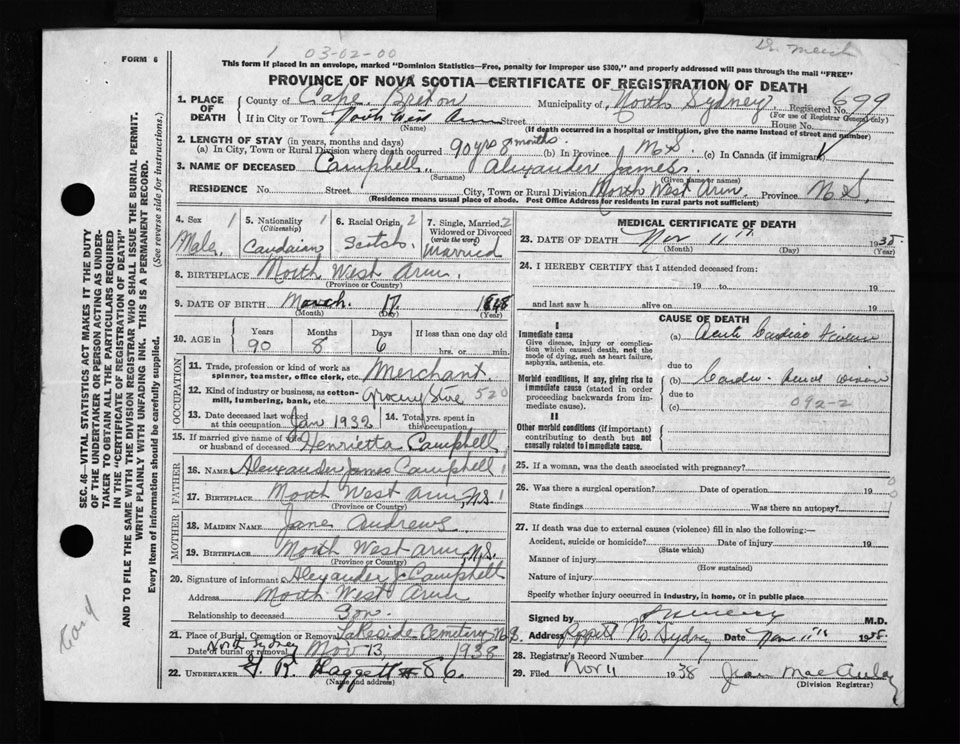 03-02-00
FORM 6
This form if placed in an envelope, marked "Dominion Statistics—Free, penalty for improper use $300," and properly addressed will pass through the mail "FREE"
PROVINCE OF NOVA SCOTIA—CERTIFICATE OF REGISTRATION OF DEATH
1. PLACE OF DEATH County of Cape Breton Municipality of North Sydney Registered No. 699
(For use of Registrar General only)
If in City or Town North West Arm Street House No.
(Name) (If death occurred in a hospital or institution, give the name instead of street and number)
2. LENGTH OF STAY (in years, months and days)
(a) In City, Town or Rural Division where death occurred 90 yrs 8 months. (b) In Province N.S. (c) In Canada (if immigrant)
3. NAME OF DECEASED Campbell, Alexander James.
(Surname) (Given or names)
RESIDENCE No. Street City, Town or Rural Division North West Arm Province N.S.
(Residence means usual place of abode. Post Office Address for residents in rural parts not sufficient)
4. Sex 1 Male,
5. Nationality 1 (Citizenship) Canadian
6. Racial Origin 2 Scotch.
7. Single, Married, 2 Widowed or Divorced (write the word) Married
8. BIRTHPLACE North West Arm.
(Province or Country)
9. DATE OF BIRTH March 17 1848
(Month) (Day) (Year)
10. AGE in Years 90 Months 8 Days 6 If less than one day old hrs. or min.
OCCUPATION
11. Trade, profession or kind of work as spinner, teamster, office clerk, etc. Merchant.
12. Kind of industry or business, as cotton-mill, lumbering, bank, etc. Grocery Store 520
13. Date deceased last worked at this occupation Jan 1932 14. Total yrs. spent in this occupation
15. If married give name of wife or husband of deceased Henrietta Campbell
FATHER
16. NAME Alexander James Campbell
17. BIRTHPLACE North West Arm, N.S.
(Province or Country)
MOTHER
18. MAIDEN NAME Jane Andrews
19. BIRTHPLACE North West Arm, N.S.
(Province or Country)
20. Signature of informant Alexander J Campbell
Address North West Arm
Relationship to deceased Son.
21. Place of Burial, Cremation or Removal Lakeside Cemetery N.S.
North Sydney
Date of burial or removal Nov 13 1938
22. UNDERTAKER G. R. Haggett #86.
(Name and address)
MEDICAL CERTIFICATE OF DEATH
23. DATE OF DEATH Nov 11th 1938
(Month) (Day) (Year)
24. I HEREBY CERTIFY that I attended deceased from:
19 to 19
and last saw h alive on 19
CAUSE OF DEATH
I
Immediate cause
Give disease, injury or complication which caused death, not the mode of dying, such as heart failure, asphyxia, asthenia, etc.
(a) Acute Cardiac
due to
Morbid conditions, if any, giving rise to immediate cause (stated in order proceeding backwards from immediate cause).
(b) Cardio-
due to
(c) 092-2
II
Other morbid conditions (if important) contributing to death but not causally related to immediate cause.
25. If a woman, was the death associated with pregnancy?
26. Was there a surgical operation? Date of operation 19
State findings Was there an autopsy?
27. If death was due to external causes (violence) fill in also the following:—
Accident, suicide or homicide? Date of injury 19
(State which)
Manner of injury
(How sustained)
Nature of injury
Specify whether injury occurred in industry, in home, or in public place
Signed by M.D.
Address N. Sydney Date Nov 11th 1938.
28. Registrar's Record Number
29. Filed Nov 11 1938 Jean MacAulay
(Division Registrar)
SEC. 46—VITAL STATISTICS ACT MAKES IT THE DUTY
OF THE UNDERTAKER OR PERSON ACTING AS UNDER-
TAKER TO OBTAIN ALL THE PARTICULARS REQUIRED
IN THE "CERTIFICATE OF REGISTRATION OF DEATH"
AND TO FILE THE SAME WITH THE DIVISION REGISTRAR WHO SHALL ISSUE THE BURIAL PERMIT.
WRITE PLAINLY WITH UNFADING INK. THIS IS A PERMANENT RECORD.
Every item of information should be carefully supplied. (See reverse side for instructions.)